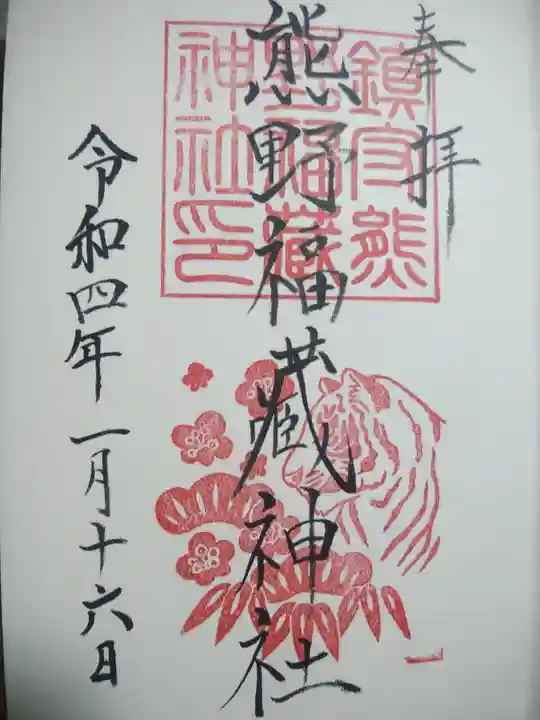 奉拝
熊野福蔵神社
令和四年一月十六日
鎮守熊
野福蔵
神社印